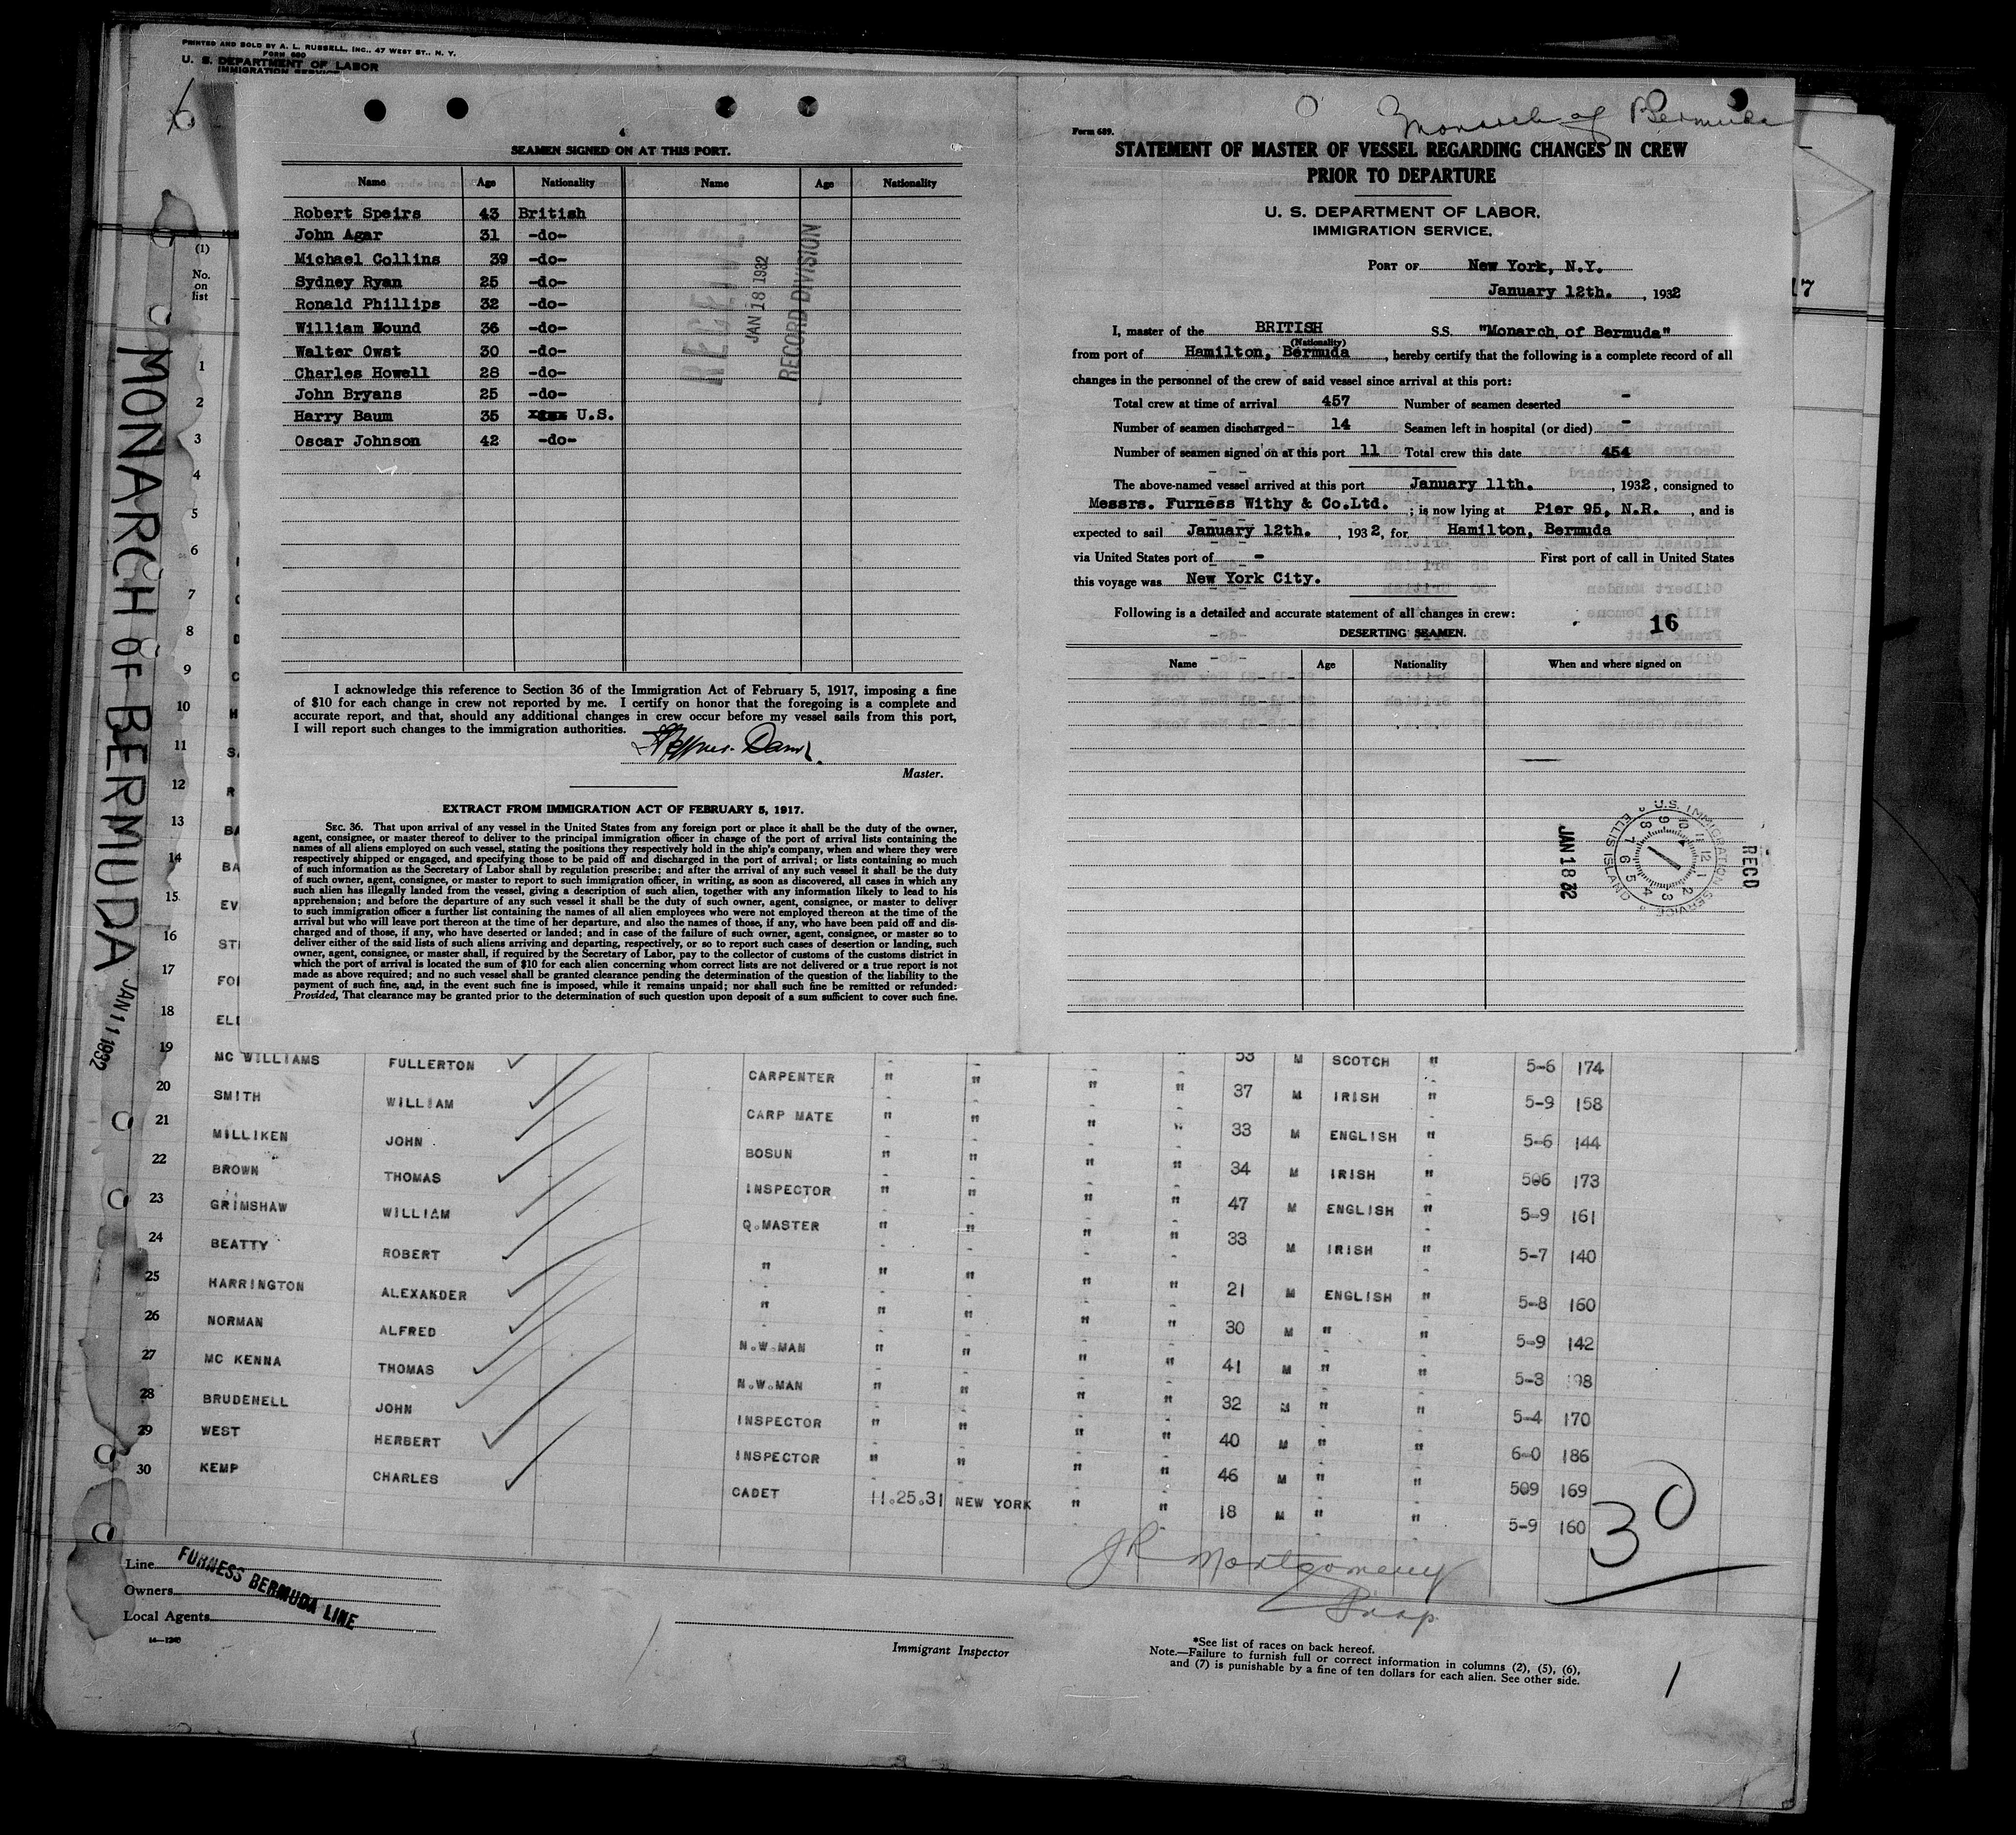 PRINTED AND SOLD BY A. L. RUSSELL, INC., 47 WEST ST., N. Y.
FORM 680
U. S. DEPARTMENT OF LABOR
IMMIGRATION SERVICE
6
4
SEAMEN SIGNED ON AT THIS PORT.
Name Age Nationality Name Age Nationality
Robert Speirs 43 British
John Agar 31 -do-
Michael Collins 39 -do-
Sydney Ryan 25 -do-
Ronald Phillips 32 -do-
William Mound 36 -do-
Walter Owst 30 -do-
Charles Howell 28 -do-
John Bryans 25 -do-
Harry Baum 35 U.S.
Oscar Johnson 42 -do-
RECEIVED
JAN 18 1932
RECORD DIVISION
I acknowledge this reference to Section 36 of the Immigration Act of February 5, 1917, imposing a fine
of $10 for each change in crew not reported by me. I certify on honor that the foregoing is a complete and
accurate report, and that, should any additional changes in crew occur before my vessel sails from this port,
I will report such changes to the immigration authorities.
Master.
EXTRACT FROM IMMIGRATION ACT OF FEBRUARY 5, 1917.
SEC. 36. That upon arrival of any vessel in the United States from any foreign port or place it shall be the duty of the owner,
agent, consignee, or master thereof to deliver to the principal immigration officer in charge of the port of arrival lists containing the
names of all aliens employed on such vessel, stating the positions they respectively hold in the ship's company, when and where they were
respectively shipped or engaged, and specifying those to be paid off and discharged in the port of arrival; or lists containing so much
of such information as the Secretary of Labor shall by regulation prescribe; and after the arrival of any such vessel it shall be the duty
of such owner, agent, consignee, or master to report to such immigration officer, in writing, as soon as discovered, all cases in which any
such alien has illegally landed from the vessel, giving a description of such alien, together with any information likely to lead to his
apprehension; and before the departure of any such vessel it shall be the duty of such owner, agent, consignee, or master to deliver
to such immigration officer a further list containing the names of all alien employees who were not employed thereon at the time of the
arrival but who will leave port thereon at the time of her departure, and also the names of those, if any, who have been paid off and dis-
charged and of those, if any, who have deserted or landed; and in case of the failure of such owner, agent, consignee, or master so to
deliver either of the said lists of such aliens arriving and departing, respectively, or so to report such cases of desertion or landing, such
owner, agent, consignee, or master shall, if required by the Secretary of Labor, pay to the collector of customs of the customs district in
which the port of arrival is located the sum of $10 for each alien concerning whom correct lists are not delivered or a true report is not
made as above required; and no such vessel shall be granted clearance pending the determination of the question of the liability to the
payment of such fine, and, in the event such fine is imposed, while it remains unpaid; nor shall such fine be remitted or refunded:
Provided, That clearance may be granted prior to the determination of such question upon deposit of a sum sufficient to cover such fine.
Monarch of Bermuda
Form 689.
STATEMENT OF MASTER OF VESSEL REGARDING CHANGES IN CREW
PRIOR TO DEPARTURE
U. S. DEPARTMENT OF LABOR.
IMMIGRATION SERVICE.
PORT OF New York, N.Y.
January 12th. , 1932
I, master of the BRITISH S.S. "Monarch of Bermuda"
(Nationality)
from port of Hamilton, Bermuda , hereby certify that the following is a complete record of all
changes in the personnel of the crew of said vessel since arrival at this port:
Total crew at time of arrival 457 Number of seamen deserted -
Number of seamen discharged - 14 Seamen left in hospital (or died) -
Number of seamen signed on at this port 11 Total crew this date 454
The above-named vessel arrived at this port January 11th. , 1932, consigned to
Messrs. Furness Withy & Co.Ltd. ; is now lying at Pier 95, N.R. , and is
expected to sail January 12th. , 1932, for Hamilton, Bermuda
via United States port of - First port of call in United States
this voyage was New York City.
Following is a detailed and accurate statement of all changes in crew:
16
DESERTING SEAMEN.
Name Age Nationality When and where signed on
U.S. IMMIGRATION SERVICE ELLIS ISLAND
JAN 18 32
RECD
17
MONARCH OF BERMUDA JAN 11 1932
(1)
No.
on
list
1
2
3
4
5
6
7
8
9
10
11
12
13
14
15
16
17
18
19
MC WILLIAMS FULLERTON CARPENTER " " " " 53 M SCOTCH " 5-6 174
20
SMITH WILLIAM CARP MATE " " " " 37 M IRISH " 5-9 158
21
MILLIKEN JOHN BOSUN " " " " 33 M ENGLISH " 5-6 144
22
BROWN THOMAS INSPECTOR " " " " 34 M IRISH " 506 173
23
GRIMSHAW WILLIAM Q.MASTER " " " " 47 M ENGLISH " 5-9 161
24
BEATTY ROBERT " " " " " 33 M IRISH " 5-7 140
25
HARRINGTON ALEXANDER " " " " " 21 M ENGLISH " 5-8 160
26
NORMAN ALFRED N.W.MAN " " " " 30 M " " 5-9 142
27
MC KENNA THOMAS N.W.MAN " " " " 41 M " " 5-3 198
28
BRUDENELL JOHN INSPECTOR " " " " 32 M " " 5-4 170
29
WEST HERBERT INSPECTOR " " " " 40 M " " 6-0 186
30
KEMP CHARLES CADET 11.25.31 NEW YORK " " 46 M " " 509 169
18 M " " 5-9 160
30
JR Montgomery
Line
Owners
Local Agents
FURNESS BERMUDA LINE
14-1240
Immigrant Inspector
*See list of races on back hereof.
Note.—Failure to furnish full or correct information in columns (2), (5), (6),
and (7) is punishable by a fine of ten dollars for each alien. See other side.
1